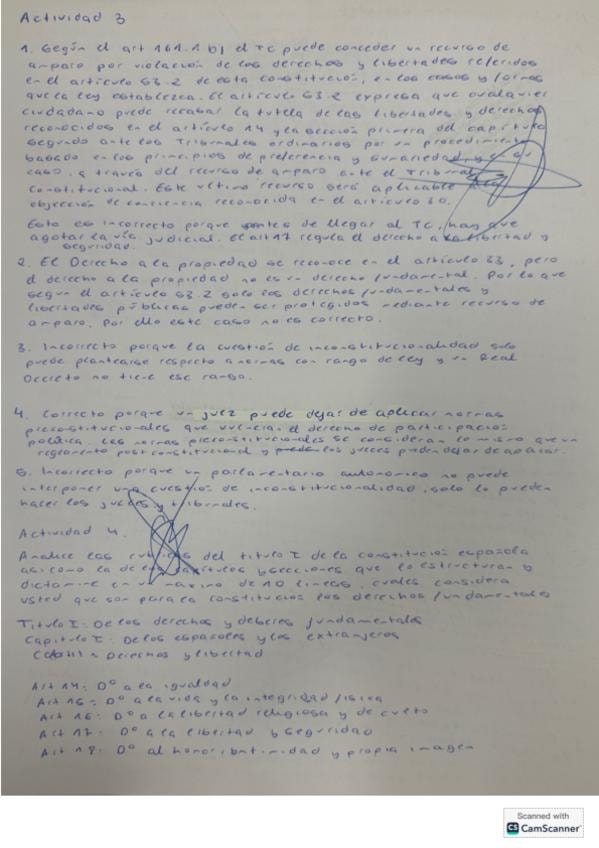 Actividad 3
1. Según el art 161.1 b) el TC puede conceder un recurso de
amparo por violación de los derechos y libertades referidos
en el artículo 53.2 de esta constitución, en los casos y formas
que la ley establezca. El artículo 53.2 expresa que cualquier
ciudadano puede recabar la tutela de las libertades y derechos
reconocidos en el artículo 14 y la sección primera del capítulo
segundo ante los Tribunales ordinarios por un procedimiento
basado en los principios de preferencia y sumariedad, y en su
caso, a través del recurso de amparo ante el Tribunal
Constitucional. Este ultimo recurso será aplicable a la
objección de conciencia reconocida en el articulo 30.
Esto es incorrecto porque antes de llegar al TC, hay que
agotar la vía judicial. El art 17 regula el derecho a la libertad y
seguridad.
2. El Derecho a la propiedad se reconoce en el artículo 33, pero
el derecho a la propiedad no es un derecho fundamental. Por lo que
según el artículo 53.2 solo los derechos fundamentales y
libertades públicas pueden ser protegidos mediante recurso de
amparo. Por ello este caso no es correcto.
3. Incorrecto porque la cuestión de inconstitucionalidad solo
puede plantearse respecto a normas con rango de ley y un Real
Decreto no tiene ese rango.
4. Correcto porque un juez puede dejar de aplicar normas
preconstitucionales que vulneran el derecho de participación
política. Las normas preconstitucionales se consideran lo mismo que un
reglamento postconstitucional y los jueces pueden dejar de aplicar.
5. Incorrecto porque un parlamentario autonómico no puede
interponer una cuestión de inconstitucionalidad, solo lo pueden
hacer los jueces y tribunales.
Actividad 4.
Analice las rubricas del titulo I de la constitución española
asi como la de los capítulos y secciones que lo estructuran y
dictamine en un maximo de 10 lineas, cuales considera
usted que son para la constitución los derechos fundamentales
Titulo I: De los derechos y deberes fundamentales
Capitulo I: De los españoles y los extranjeros
Derechos y libertad
Art 14: Dº a la igualdad
Art 15: Dº a la vida y la integridad física
Art 16: Dº a la libertad religiosa y de culto
Art 17: Dº a la libertad y seguridad
Art 18: Dº al honor, intimidad y propia imagen
Scanned with
CS CamScanner